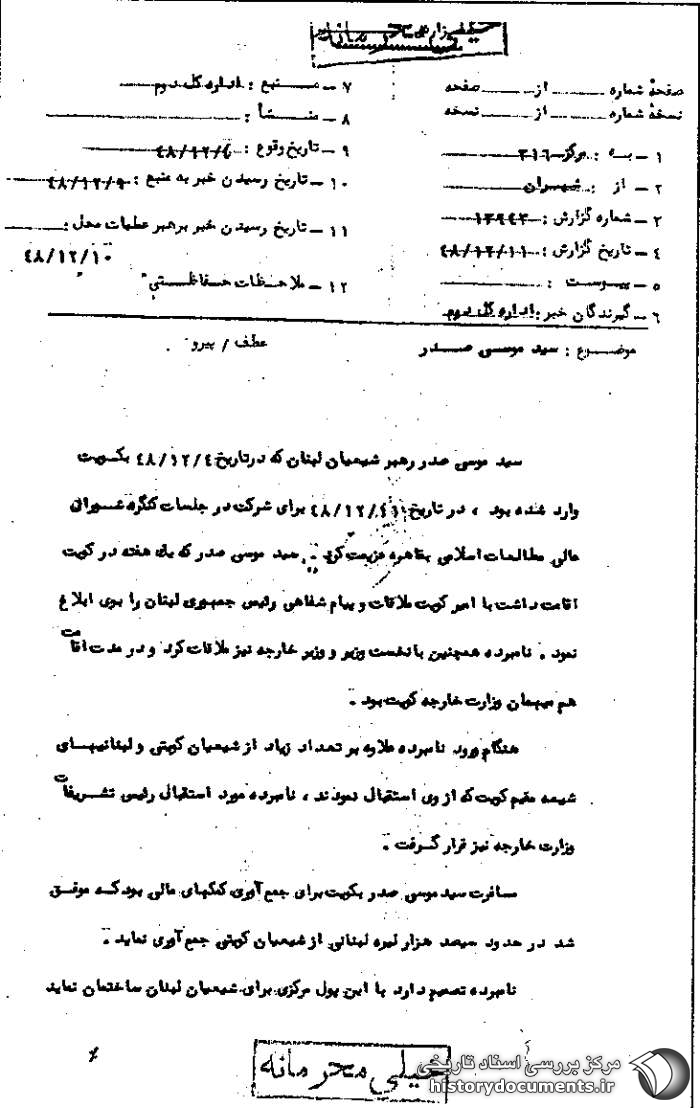 خیلی محرمانه
صفحهٔ شماره ...... از ...... صفحه
نسخهٔ شماره ...... از ...... نسخه
۱ - به : مرکز ۳۱۶
۲ - از : شهران
۳ - شماره گزارش : ۱۳۹۴۳
۴ - تاریخ گزارش : ۴۸/۱۲/۱۱
۵ - پیوست :
۶ - گیرندگان خبر : اداره کل دوم
۷ - منبع : اداره کل دوم
۸ - منشأ :
۹ - تاریخ وقوع : ۴۸/۱۲/
۱۰ - تاریخ رسیدن خبر به منبع : ۴۸/۱۲/۹
۱۱ - تاریخ رسیدن خبر برهبر عملیات محل :
۴۸/۱۲/۱۰
۱۲ - ملاحظات حفاظتی
موضوع : سید موسی صدر
عطف / پیرو
سید موسی صدر رهبر شیعیان لبنان که درتاریخ ۴۸/۱۲/۴ بکویت
وارد شده بود ، در تاریخ برای شرکت در جلسات کنگره شورای
عالی مطالعات اسلامی بقاهره عزیمت کرد . سید موسی صدر که یک هفته در کویت
اقامت داشت با امیر کویت ملاقات و پیام شفاهی رئیس جمهوری لبنان را بوی ابلاغ
نمود . نامبرده همچنین با نخست وزیر و وزیر خارجه نیز ملاقات کرد و در مدت اقامت
هم میهمان وزارت خارجه کویت بود .
هنگام ورود نامبرده علاوه بر تعداد زیاد از شیعیان کویتی و لبنانیهای
شیعه مقیم کویت که از وی استقبال نمودند ، نامبرده مورد استقبال رئیس تشریفات
وزارت خارجه نیز قرار گرفت .
مسافرت سید موسی صدر بکویت برای جمع آوری کمکهای مالی بود که موفق
شد در حدود سیصد هزار لیره لبنانی از شیعیان کویتی جمع آوری نماید .
نامبرده تصمیم دارد با این پول مرکزی برای شیعیان لبنان ساختمان نماید
خیلی محرمانه
مرکز بررسی اسناد تاریخی
historydocuments.ir